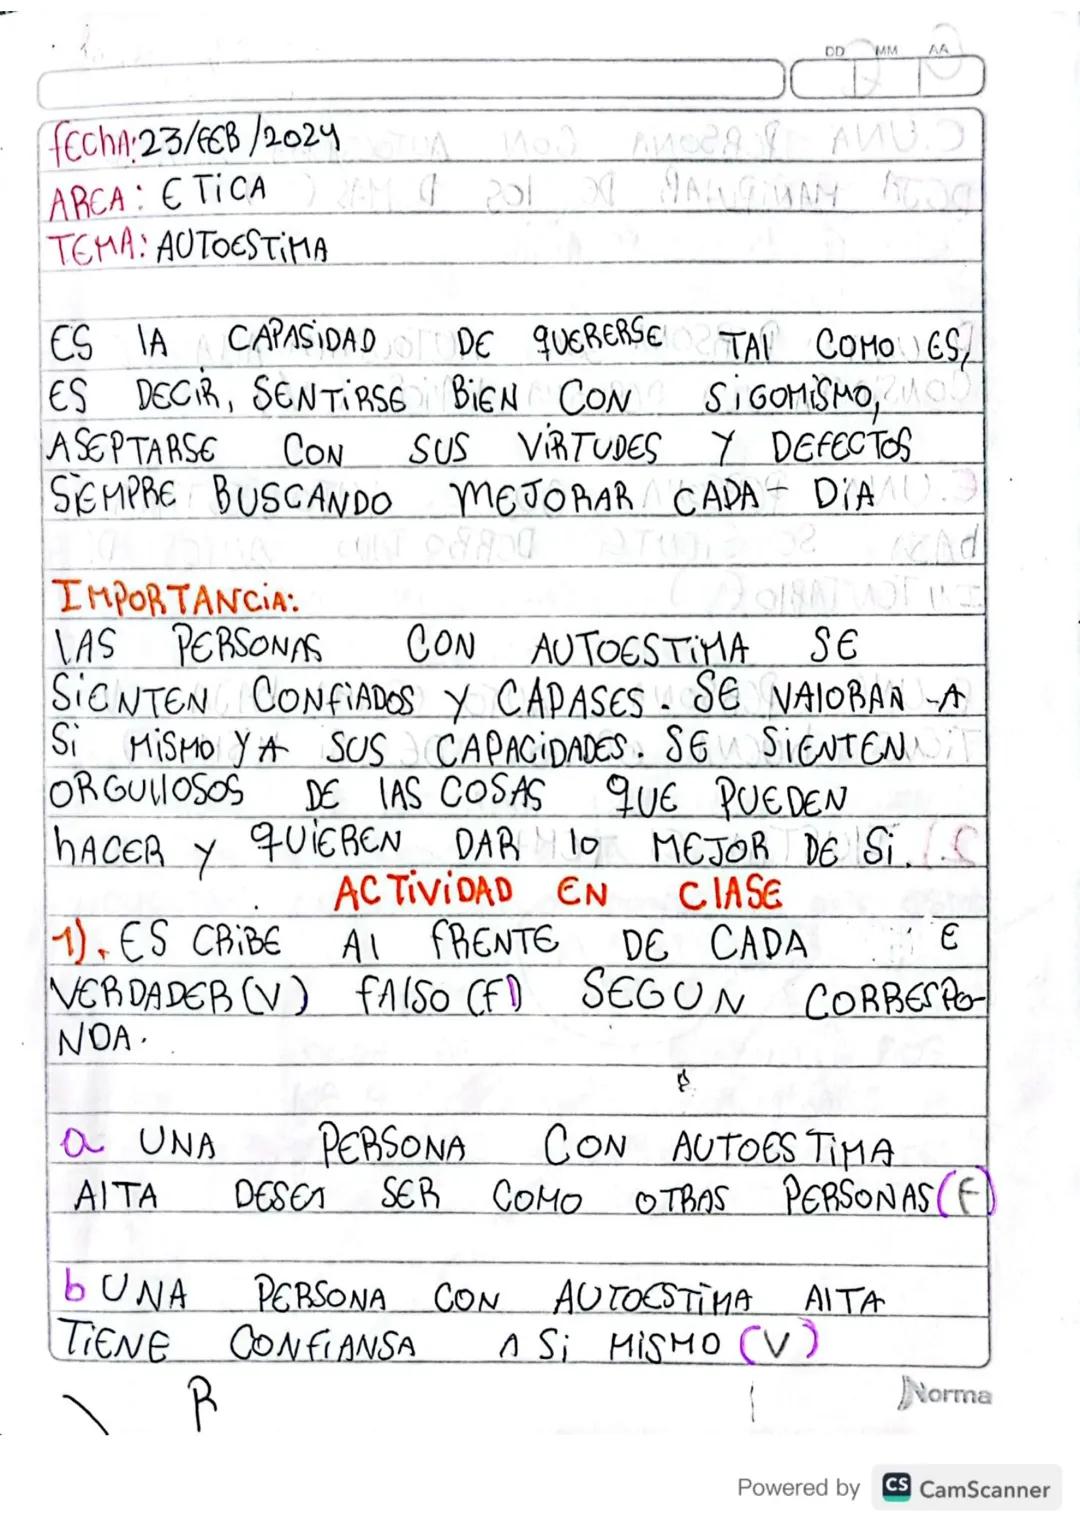 DD MM AA
fEChA: 23/FEB/2024
AREA: ETiCA
TEMA: AUTOESTiMA
ES lA CAPASiDAD DE qUERERSE TAl COMO ES,
ES DECiR, SENTiRSE BiEN CON SiGOMiSMO,
ASEPTARSE CON SUS ViRTUDES Y DEFECTOS
SiEMPRE BUSCANDO MEJORAR CADA DiA
IMPORTANCiA:
lAS PERSONAS CON AUTOESTiMA SE
SiENTEN CONFiADOS Y CAPASES. SE VAlORAN A
Si MiSMO Y A SUS CAPACiDADES. SE SiENTEN
ORGUllOSOS DE lAS COSAS qUE PUEDEN
hACER Y qUiEREN DAR lO MEJOR DE Si.
ACTiViDAD EN ClASE
1). ES CRiBE Al fRENTE DE CADA E
VERDADER (V) fAlSO (F) SEGUN CORRESPO-
NDA.
a UNA PERSONA CON AUTOESTiMA
AlTA DESEA SER COMO OTRAS PERSONAS (F)
b UNA PERSONA CON AUTOESTiMA AlTA
TiENE CONFiANSA A Si MiSMO (V)
R
Norma
Powered by CS CamScanner